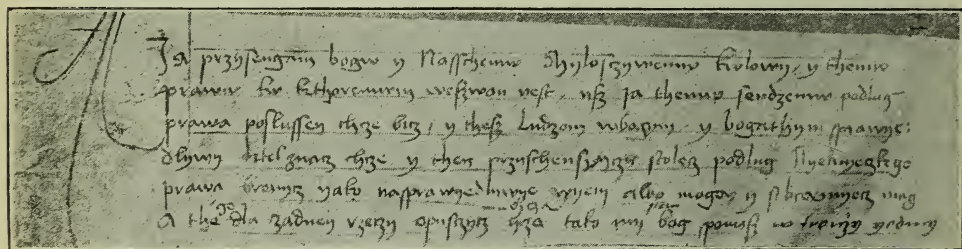 Ja przysengam bogw y Nasschemw Mylosczywemw krolowy, y themw
prawu kw kthoremum weszwan yest, ysz Ja themw sendzemw podlug
prawa poslussen chcze bicz, y thesz Ludzom vbogim y bogathym sprawye:
dlywy chcze y then przyschenszniczy stolecz podlug Nyemyeczkego
prawa bronycz yako nasprawyedlywye vmyem albo mogą y
A the dla zadney rzeczy opusczycz chcze tako my bog pomosz w troyczy yedyny